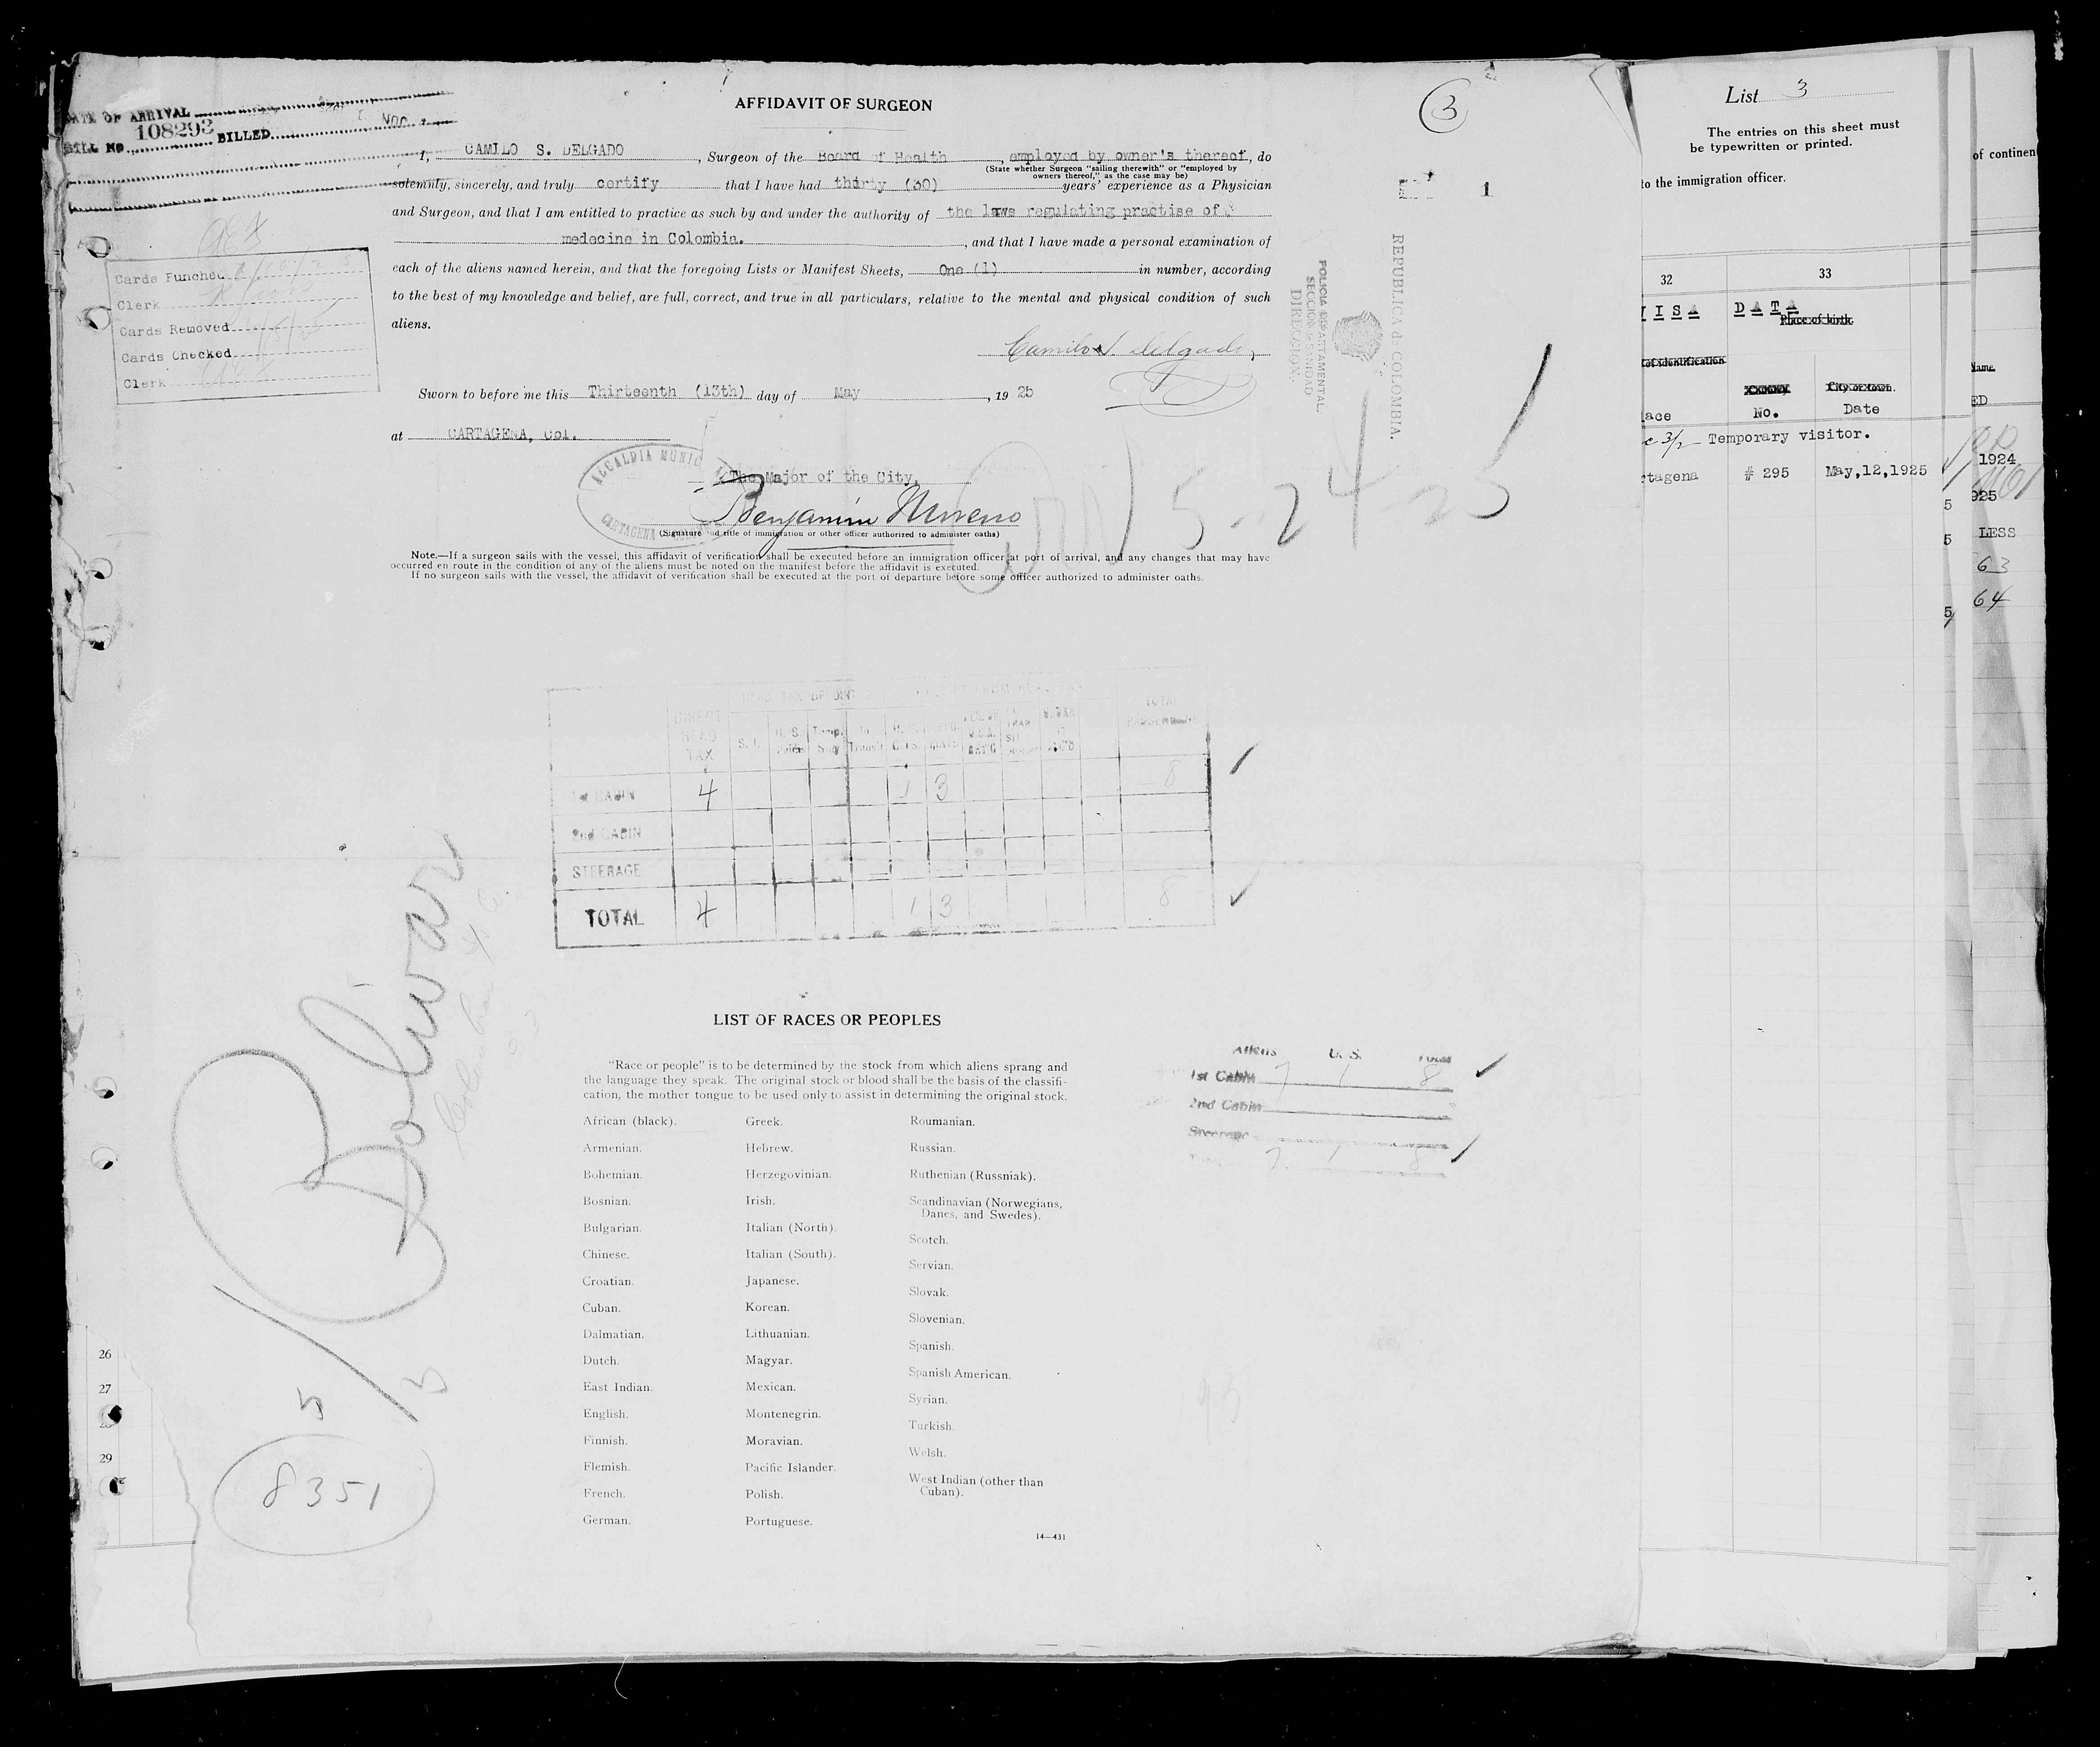 AFFIDAVIT OF SURGEON
3
DATE OF ARRIVAL
BILL No 108292 BILLED
I, CAMILO S. DELGADO, Surgeon of the Board of Health, employed by owner's thereof, do
(State whether Surgeon "sailing therewith" or "employed by
owners thereof," as the case may be)
solemnly, sincerely, and truly certify that I have had thirty (30) years' experience as a Physician
and Surgeon, and that I am entitled to practice as such by and under the authority of the laws regulating practise of
medecine in Colombia., and that I have made a personal examination of
each of the aliens named herein, and that the foregoing Lists or Manifest Sheets, One (1) in number, according
to the best of my knowledge and belief, are full, correct, and true in all particulars, relative to the mental and physical condition of such
aliens.
Camilo S. Delgado
Sworn to before me this Thirteenth (13th) day of May, 1925
at CARTAGENA, Col.
The Major of the City,
Benjamin Moreno
(Signature and title of immigration or other officer authorized to administer oaths)
Note.—If a surgeon sails with the vessel, this affidavit of verification shall be executed before an immigration officer at port of arrival, and any changes that may have
occurred en route in the condition of any of the aliens must be noted on the manifest before the affidavit is executed.
If no surgeon sails with the vessel, the affidavit of verification shall be executed at the port of departure before some officer authorized to administer oaths.
ALCALDIA MUNIC
CARTAGENA
1
REPUBLICA de COLOMBIA.
POLICIA DEPARTAMENTAL.
SECCION de SANIDAD
DIRECCION.
5-24-25
Cards Punched
Clerk
Cards Removed
Cards Checked
Clerk
DIRECT HEAD TAX
S. I.
TOTAL
1st CABIN 4 1 3 8
2nd CABIN
STEERAGE
TOTAL 4 1 3 8
Bolivar
8351
26
27
29
LIST OF RACES OR PEOPLES
"Race or people" is to be determined by the stock from which aliens sprang and
the language they speak. The original stock or blood shall be the basis of the classifi-
cation, the mother tongue to be used only to assist in determining the original stock.
African (black).
Armenian.
Bohemian.
Bosnian.
Bulgarian.
Chinese.
Croatian.
Cuban.
Dalmatian.
Dutch.
East Indian.
English.
Finnish.
Flemish.
French.
German.
Greek.
Hebrew.
Herzegovinian.
Irish.
Italian (North).
Italian (South).
Japanese.
Korean.
Lithuanian.
Magyar.
Mexican.
Montenegrin.
Moravian.
Pacific Islander.
Polish.
Portuguese.
Roumanian.
Russian.
Ruthenian (Russniak).
Scandinavian (Norwegians,
Danes, and Swedes).
Scotch.
Servian.
Slovak.
Slovenian.
Spanish.
Spanish American.
Syrian.
Turkish.
Welsh.
West Indian (other than
Cuban).
14—431
Aliens U. S. Total
1st Cabin 7 1 8
2nd Cabin
Steerage
7 1 8
List 3
The entries on this sheet must
be typewritten or printed.
to the immigration officer.
32 33
ISA DATA
Place of birth.
of identification
City or town.
lace No. Date
Temporary visitor.
tagena # 295 May,12,1925
of continen
Name.
ED
1924
925
LESS
63
64
5
5
5